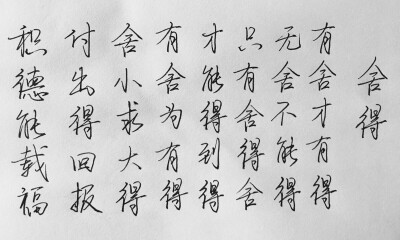 舍得
有舍才有得
无舍不能得
只有舍得舍
才能得到得
有舍为有得
舍小求大得
付出得回报
积德能载福